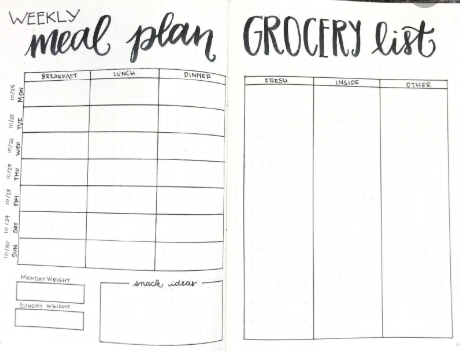 WEEKLY
meal plan
BREAKFAST LUNCH DINNER
10/24 MON
10/25 TUE
10/26 WED
THU
10/28 FRI
10/29 SAT
10/30 SUN
MONDAY WEIGHT
SUNDAY WEIGHT
snack ideas
GROCERY list
FRESH INSIDE OTHER